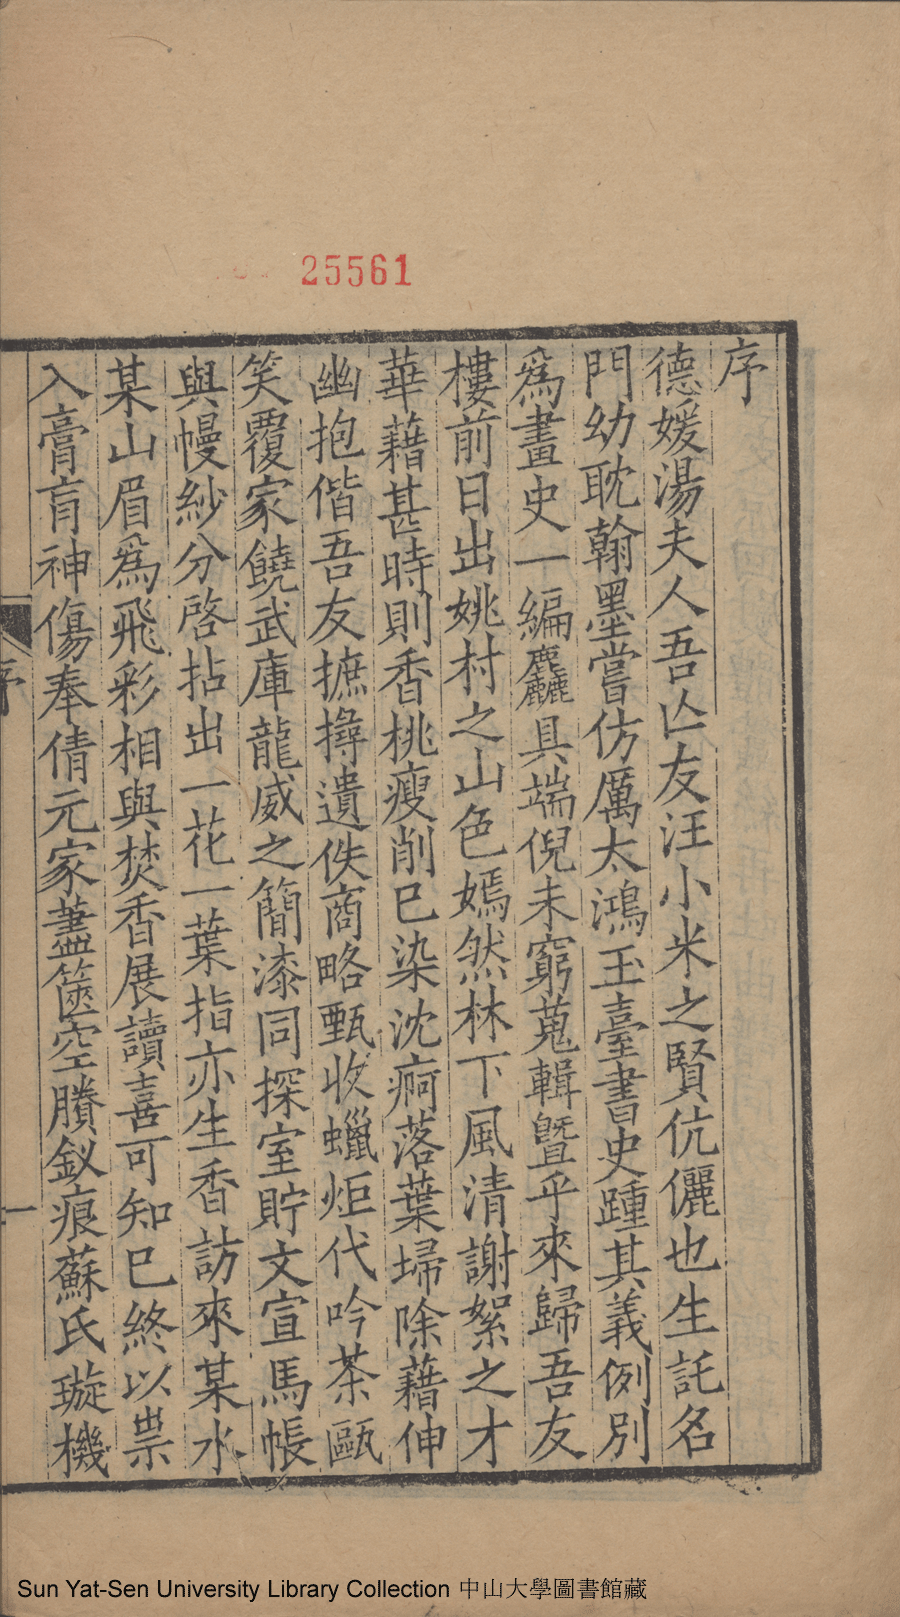 25561
序
德媛湯夫人吾亡友汪小米之賢伉儷也生託名
門幼耽翰墨嘗仿厲太鴻玉臺書史踵其義例別
爲畫史一編麤具端倪未窮蒐輯曁乎來歸吾友
樓前日出姚村之山色嫣然林下風清謝絮之才
華藉甚時則香桃瘦削已染沈痾落葉埽除藉伸
幽抱偕吾友摭撏遺佚商略甄收蠟炬代吟茶甌
笑覆家饒武庫龍威之簡漆同探室貯文宣馬帳
與幔紗分啓拈出一花一葉指亦生香訪來某水
某山眉爲飛彩相與焚香展讀喜可知已終以祟
入膏肓神傷奉倩元家藎篋空賸釵痕蘇氏璇機
序
一
Sun Yat-Sen University Library Collection 中山大學圖書館藏